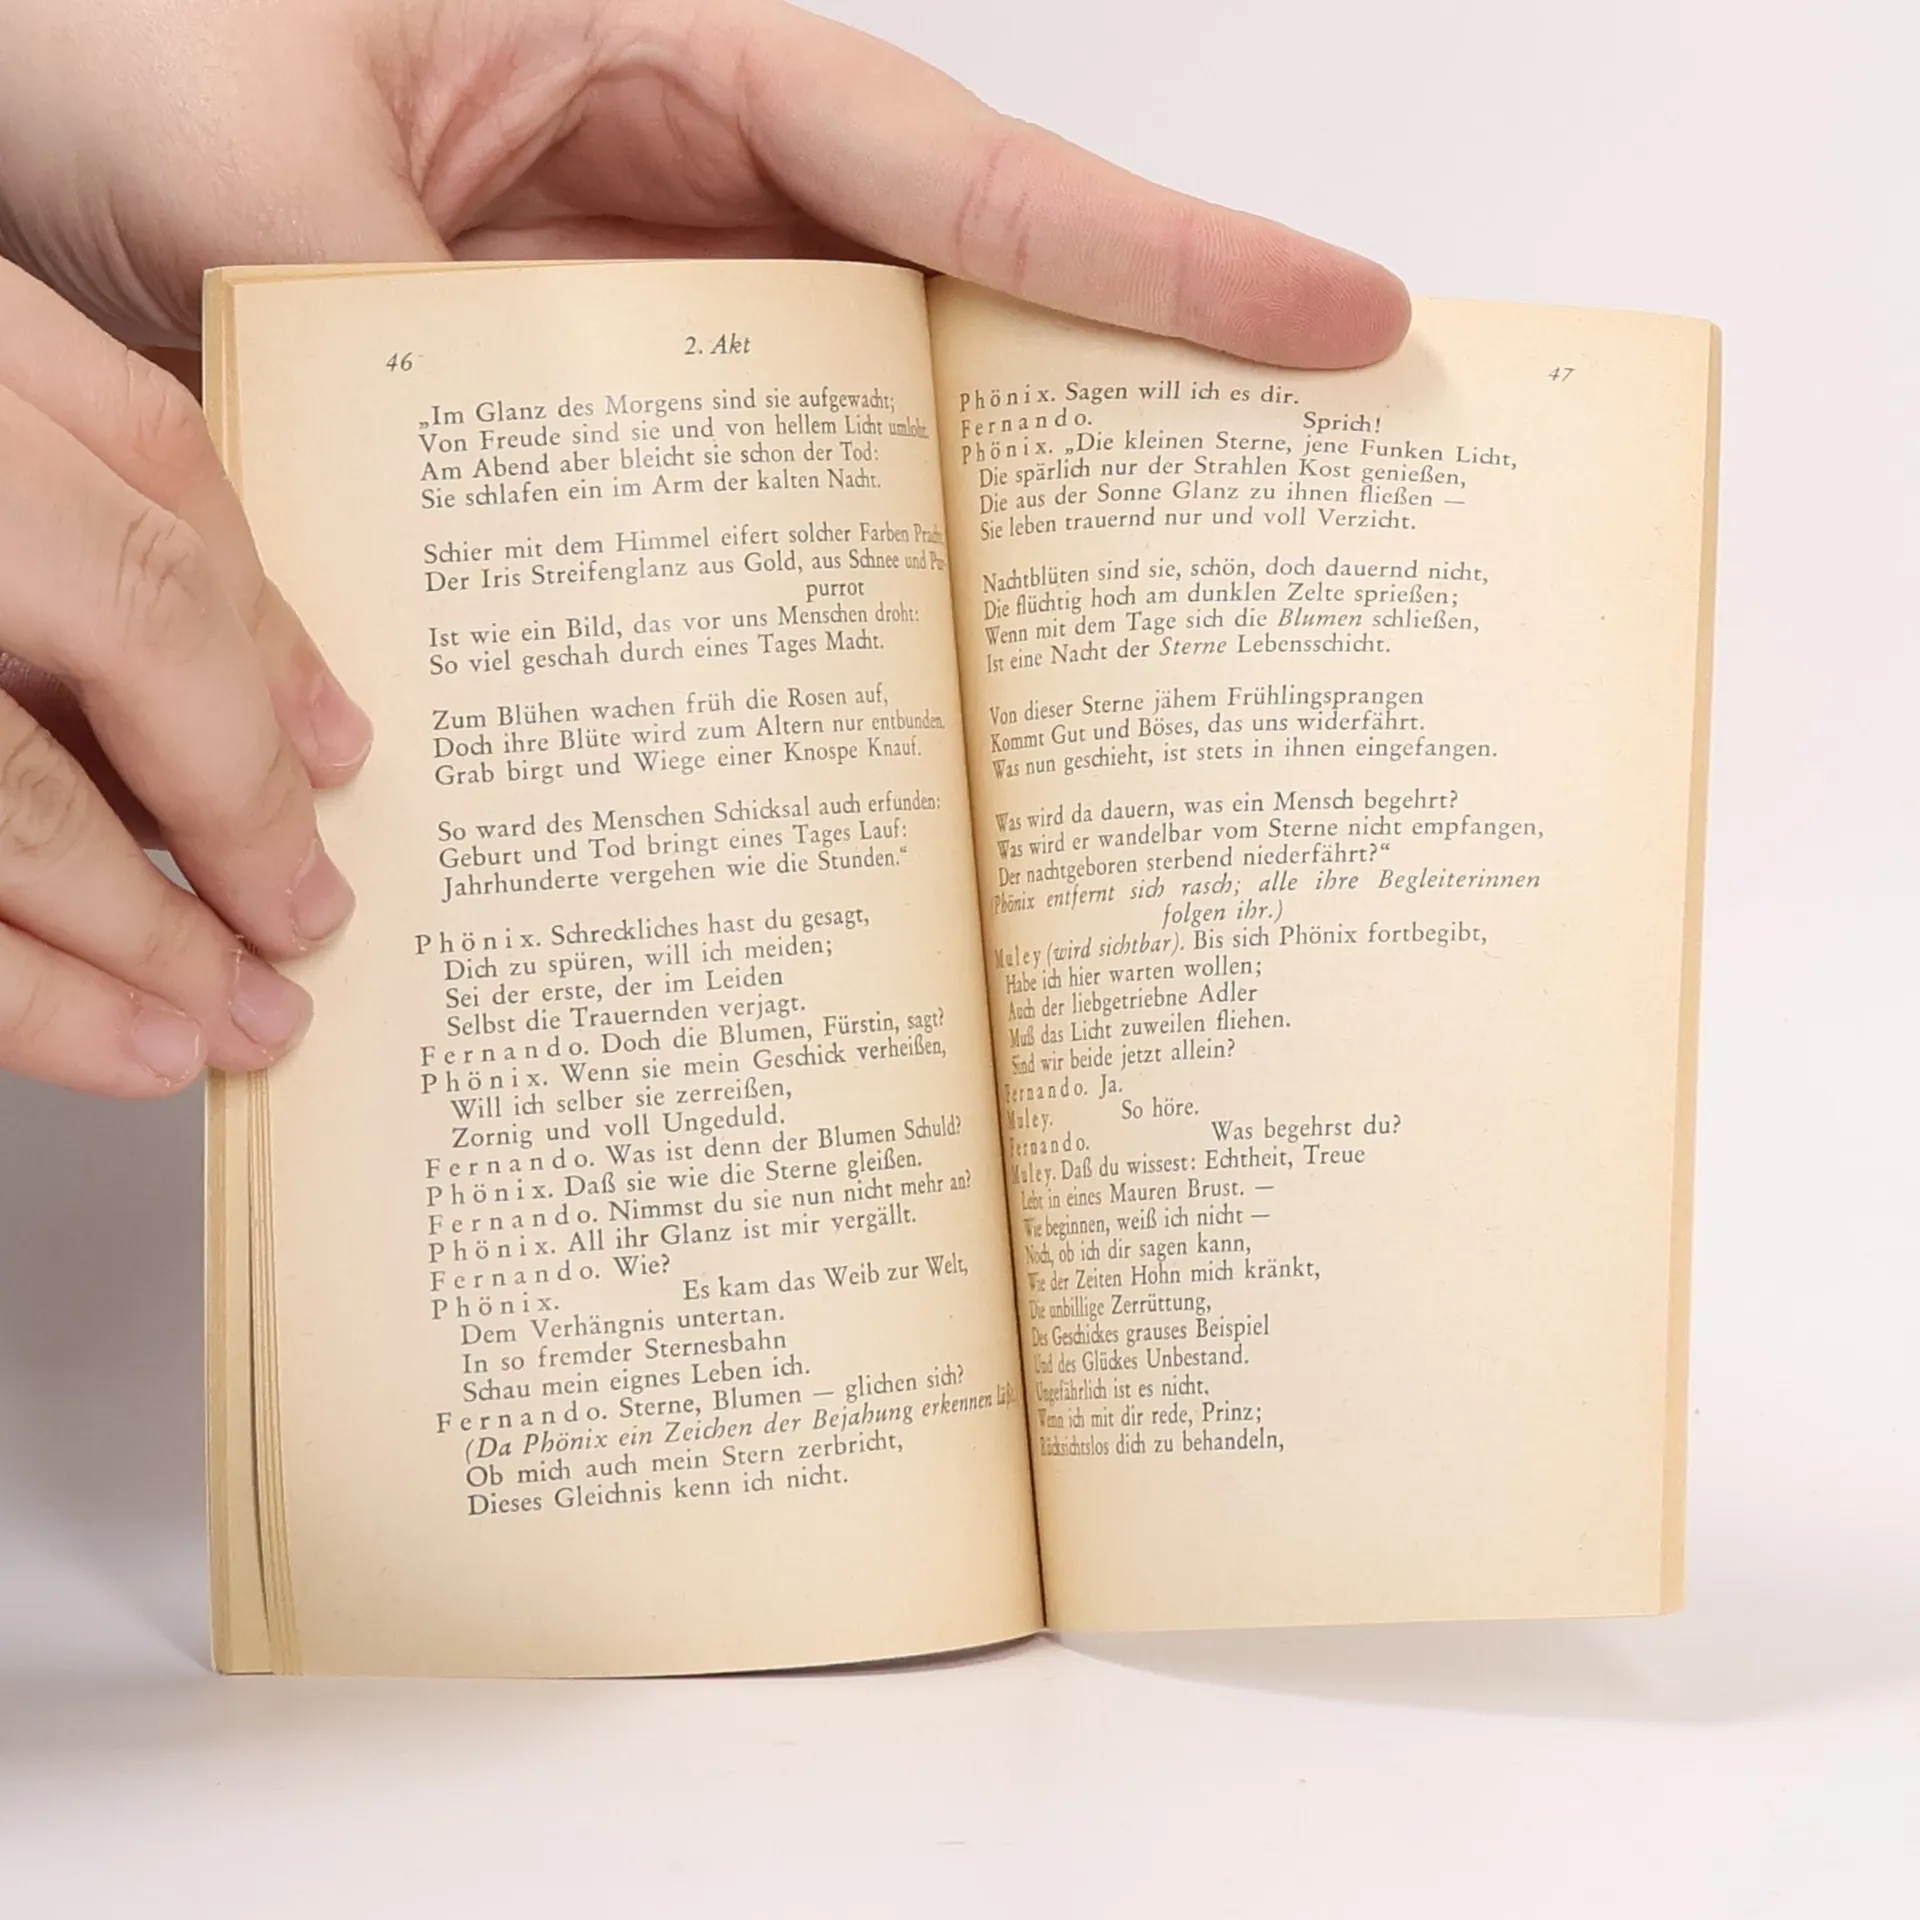 46
2. Akt
„Im Glanz des Morgens sind sie aufgewacht;
Von Freude sind sie und von hellem Licht umloht.
Am Abend aber bleicht sie schon der Tod:
Sie schlafen ein im Arm der kalten Nacht.
Schier mit dem Himmel eifert solcher Farben Pracht,
Der Iris Streifenglanz aus Gold, aus Schnee und Pur-
purrot
Ist wie ein Bild, das vor uns Menschen droht:
So viel geschah durch eines Tages Macht.
Zum Blühen wachen früh die Rosen auf,
Doch ihre Blüte wird zum Altern nur entbunden.
Grab birgt und Wiege einer Knospe Knauf.
So ward des Menschen Schicksal auch erfunden:
Geburt und Tod bringt eines Tages Lauf:
Jahrhunderte vergehen wie die Stunden.“
Phönix. Schreckliches hast du gesagt,
Dich zu spüren, will ich meiden;
Sei der erste, der im Leiden
Selbst die Trauernden verjagt.
Fernando. Doch die Blumen, Fürstin, sagt?
Phönix. Wenn sie mein Geschick verheißen,
Will ich selber sie zerreißen,
Zornig und voll Ungeduld.
Fernando. Was ist denn der Blumen Schuld?
Phönix. Daß sie wie die Sterne gleißen.
Fernando. Nimmst du sie nun nicht mehr an?
Phönix. All ihr Glanz ist mir vergällt.
Fernando. Wie?
Phönix. Es kam das Weib zur Welt,
Dem Verhängnis untertan.
In so fremder Sternesbahn
Schau mein eignes Leben ich.
Fernando. Sterne, Blumen — glichen sich?
(Da Phönix ein Zeichen der Bejahung erkennen läßt.)
Ob mich auch mein Stern zerbricht,
Dieses Gleichnis kenn ich nicht.
47
Phönix. Sagen will ich es dir.
Fernando. Sprich!
Phönix. „Die kleinen Sterne, jene Funken Licht,
Die spärlich nur der Strahlen Kost genießen,
Die aus der Sonne Glanz zu ihnen fließen —
Sie leben trauernd nur und voll Verzicht.
Nachtblüten sind sie, schön, doch dauernd nicht,
Die flüchtig hoch am dunklen Zelte sprießen;
Wenn mit dem Tage sich die Blumen schließen,
Ist eine Nacht der Sterne Lebensschicht.
Von dieser Sterne jähem Frühlingsprangen
Kommt Gut und Böses, das uns widerfährt.
Was nun geschieht, ist stets in ihnen eingefangen.
Was wird da dauern, was ein Mensch begehrt?
Was wird er wandelbar vom Sterne nicht empfangen,
Der nachtgeboren sterbend niederfährt?“
(Phönix entfernt sich rasch; alle ihre Begleiterinnen
folgen ihr.)
Muley (wird sichtbar). Bis sich Phönix fortbegibt,
Habe ich hier warten wollen;
Auch der liebgetriebne Adler
Muß das Licht zuweilen fliehen.
Sind wir beide jetzt allein?
Fernando. Ja.
Muley. So höre.
Fernando. Was begehrst du?
Muley. Daß du wissest: Echtheit, Treue
Lebt in eines Mauren Brust. —
Wie beginnen, weiß ich nicht —
Noch, ob ich dir sagen kann,
Wie der Zeiten Hohn mich kränkt,
Die unbillige Zerrüttung,
Des Geschickes grauses Beispiel
Und des Glückes Unbestand.
Ungefährlich ist es nicht,
Wenn ich mit dir rede, Prinz;
Rücksichtslos dich zu behandeln,